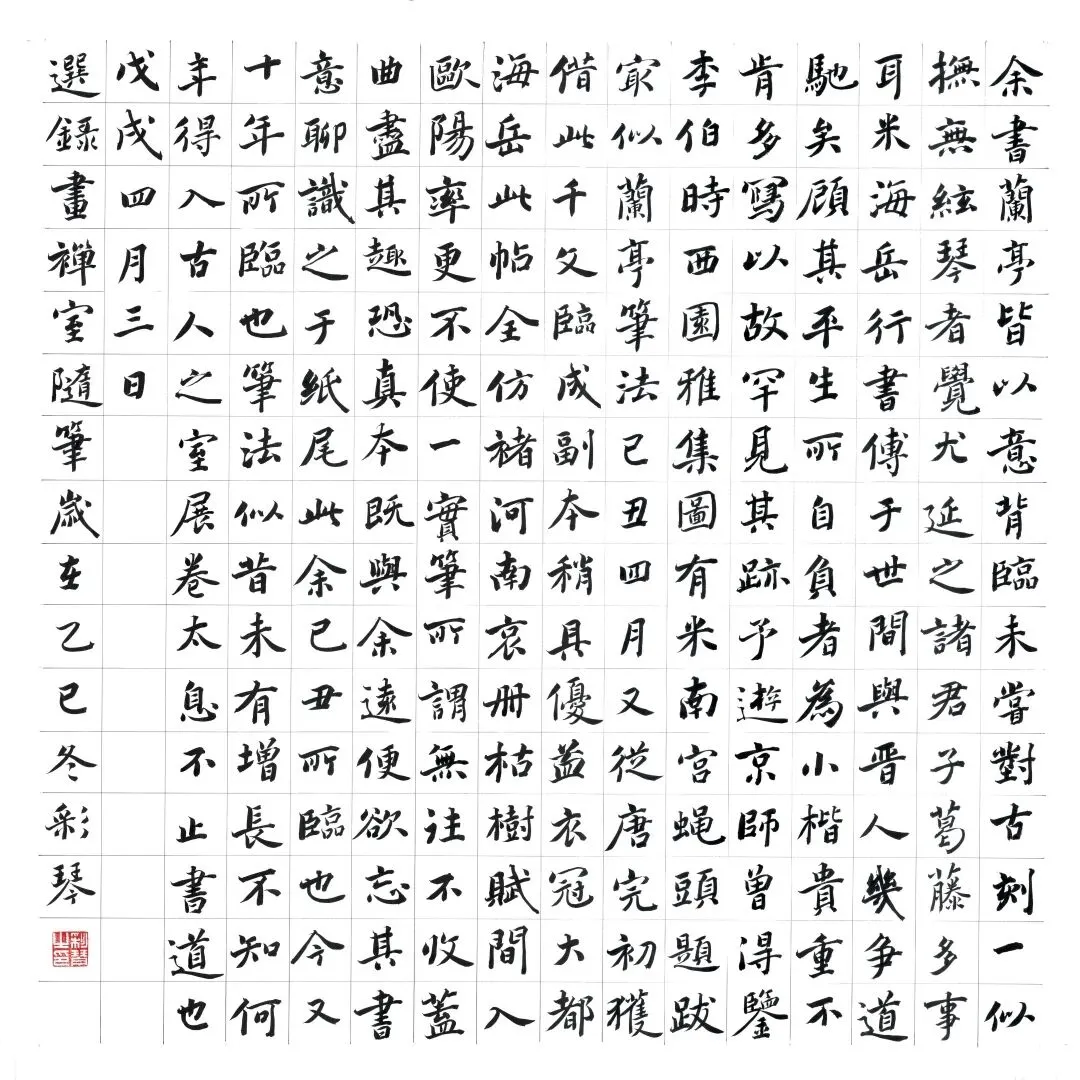 余書蘭亭皆以意背臨未嘗對古刻一似
撫無絃琴者覺尤延之諸君子葛藤多事
耳米海岳行書傅于世間與晋人幾爭道
馳矣顧其平生所自負者為小楷貴重不
肯多寫以故罕見其跡予遊京師曾得鑒
李伯時西園雅集圖有米南宮蝇頭題跋
㝡似蘭亭筆法已丑四月又從唐完初獲
借此千文臨成副本稍具優葢衣冠大都
海岳此帖全仿褚河南哀册枯樹賦間入
歐陽率更不使一實筆所謂無注不收蓋
曲盡其趣恐真本既與余遠便欲忘其書
意聊識之于紙尾此余已丑所臨也今又
十年所臨也筆法似昔未有增長不知何
年得入古人之室展卷太息不止書道也
戊戌四月三日
選錄畫禪室隨筆嵗在乙巳冬彩琴